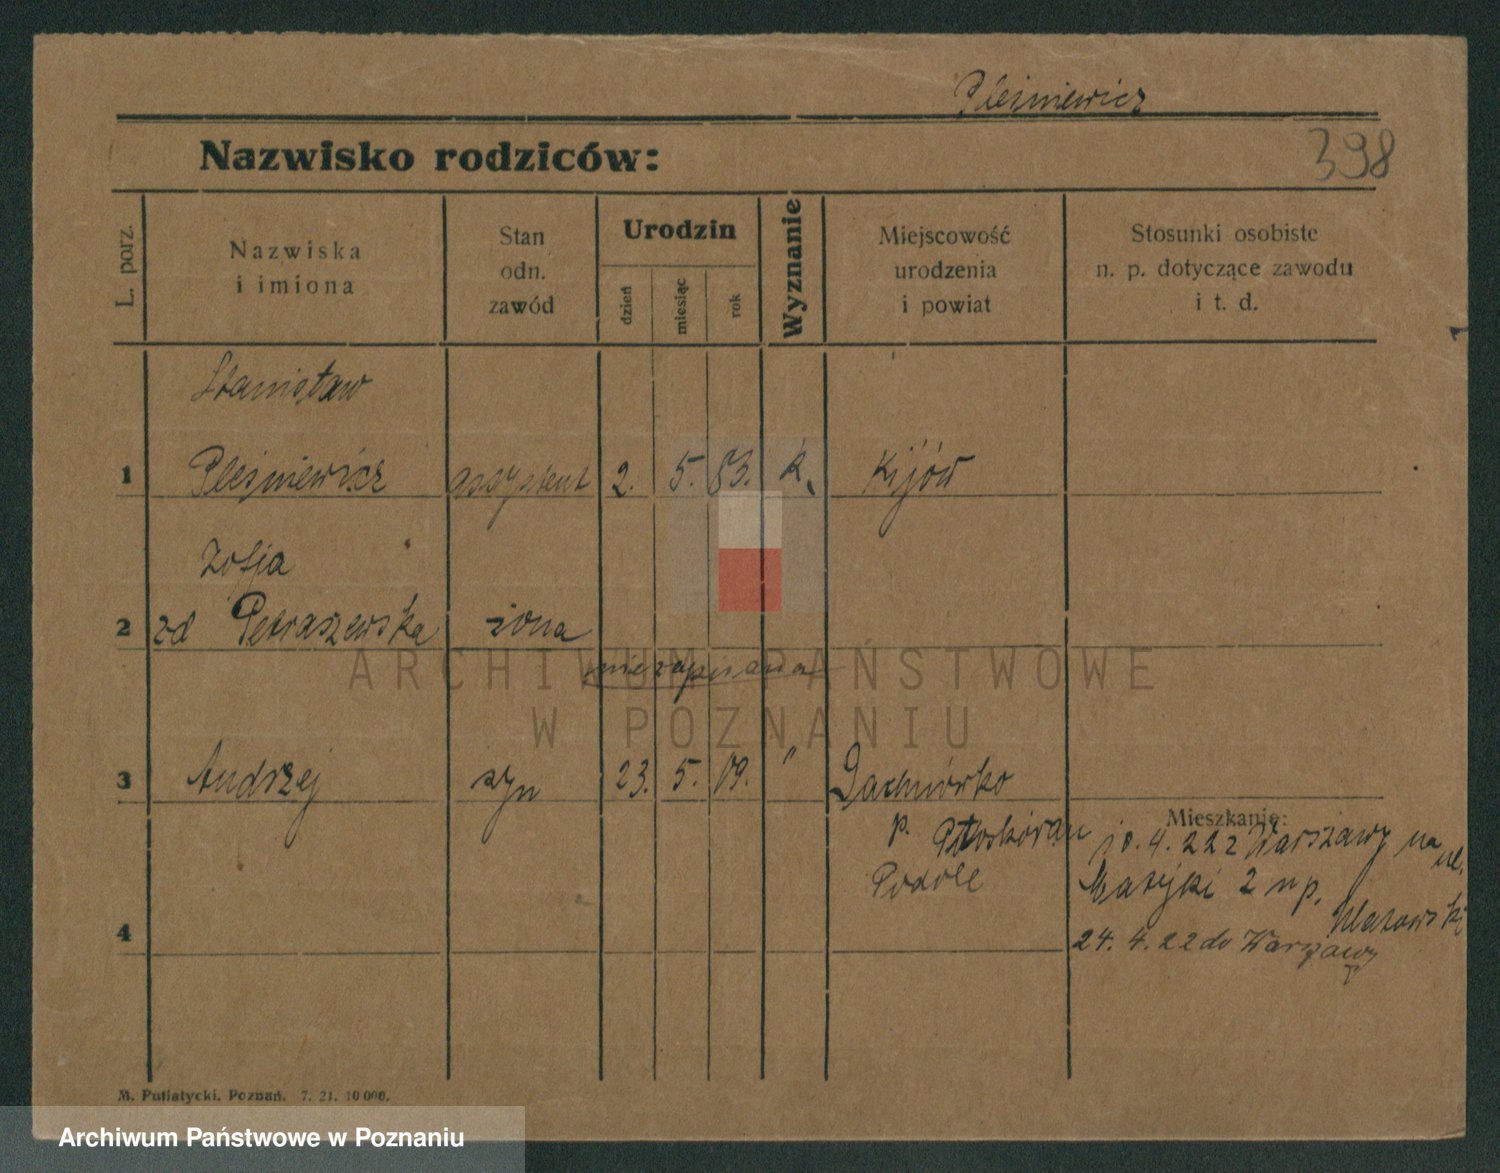 Pleśniewicz
Nazwisko rodziców:
398
L. porz.
Nazwiska
i imiona
Stan
odn.
zawód
Urodzin
dzień
miesiąc
rok
Wyznanie
Miejscowość
urodzenia
i powiat
Stosunki osobiste
n. p. dotyczące zawodu
i t. d.
Stanisław
1 Pleśniewicz assystent 2. 5. 83. k. Kijów
Zofja
2 zd Petraszewska żona
niezapisana
ARCHIWUM PAŃSTWOWE
W POZNANIU
3 Andrzej syn 23. 5. 09. "
Mieszkanie:
p.
Podole
10. 4. 22 z Warszawy na ul.
Matejki 2 n p.
4
24. 4. 22 do Warszawy
M. Putiatycki, Poznań. 7. 21. 10000.
Archiwum Państwowe w Poznaniu